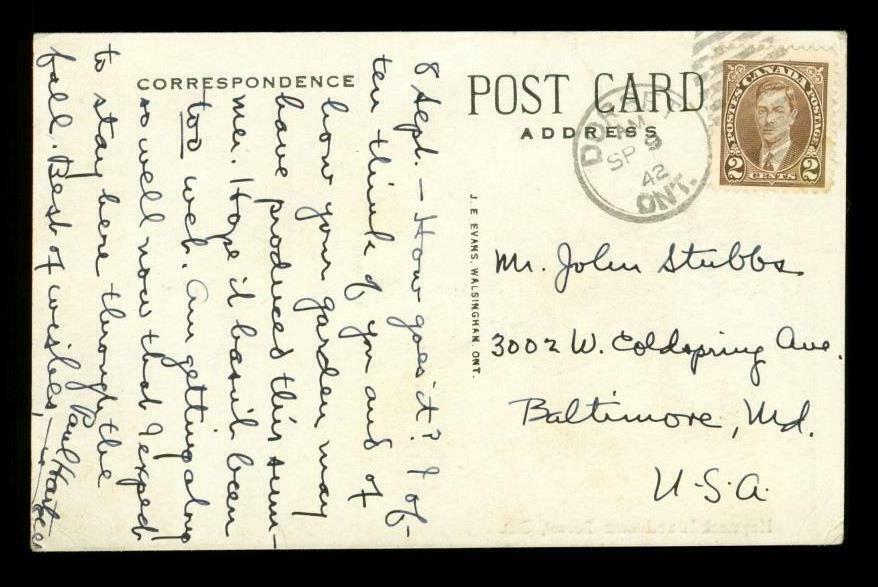 CORRESPONDENCE
8 Sept. — How goes it? I of-
ten think of you and of
how your garden may
have produced this sum-
mer. Hope it hasn't been
too wet. Am getting along
so well now that I expect
to stay here through the
fall. Best of wishes, —
Paul
POST CARD
ADDRESS
AM
SP 9
42
ONT.
POSTES CANADA POSTAGE
2 CENTS 2
J. E. EVANS, WALSINGHAM, ONT.
Mr. John Stubbs
3002 W. Coldspring Ave.
Baltimore, Md.
U.S.A.